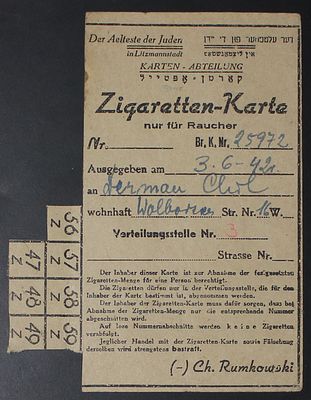 Der Aelteste der Juden
in Litzmannstadt
דער עלטסטער פון די יידן
אין ליצמאנשטאט
KARTEN - ABTEILUNG
קארטן-אפטייל
Zigaretten-Karte
nur für Raucher
Nr. Br. K. Nr. 25972
Ausgegeben am 3.-6-42
an Herman
wohnhaft Str. Nr. 16 W.
Verteilungsstelle Nr. 3
Strasse Nr.
Der Inhaber dieser Karte ist zur Abnahme der festgesetzten
Zigaretten-Menge für eine Person berechtigt.
Die Zigaretten dürfen nur in der Verteilungsstelle, die für den
Inhaber der Karte bestimmt ist, abgenommen werden.
Der Inhaber der Karte muss dafür sorgen, dass bei
Abnahme der Zigaretten-Menge nur die entsprechende Nummer
abgeschnitten wird.
Auf lose Nummernabschnitte werden keine Zigaretten
verabfolgt.
Jeglicher Handel mit der Zigaretten-Karte sowie Fälschung
derselben wird strengstens bestraft.
(-) Ch. Rumkowski
56 Z
57 Z
58 Z
59 Z
47 Z
48 Z
49 Z